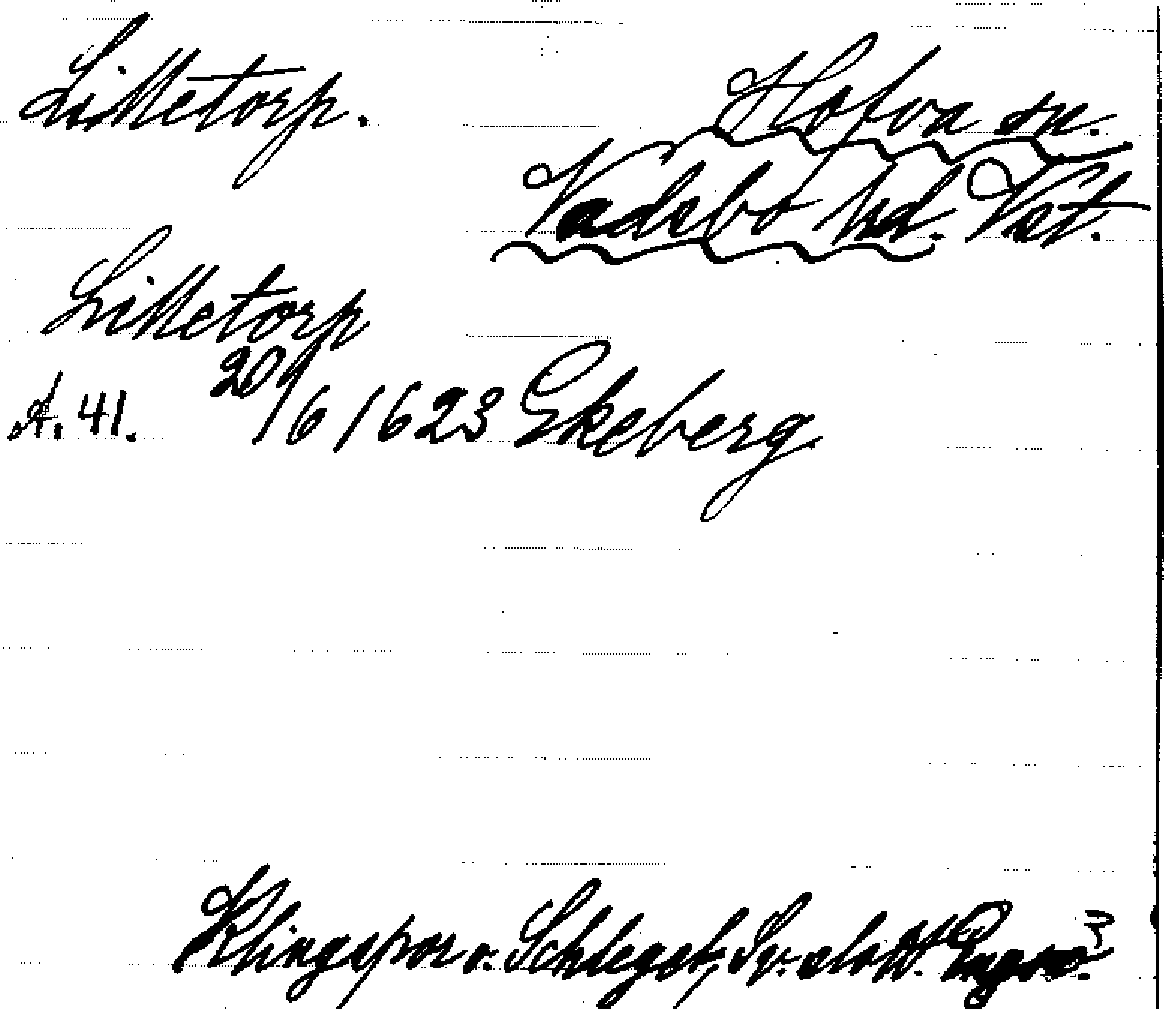 Lilletorp. Hofva sn.
Vadsbo hd. Vst.
Lilletorp
A. 41. 20/6 1623 Ekeberg
Klingspor o. Schlegel, Sv. slott.